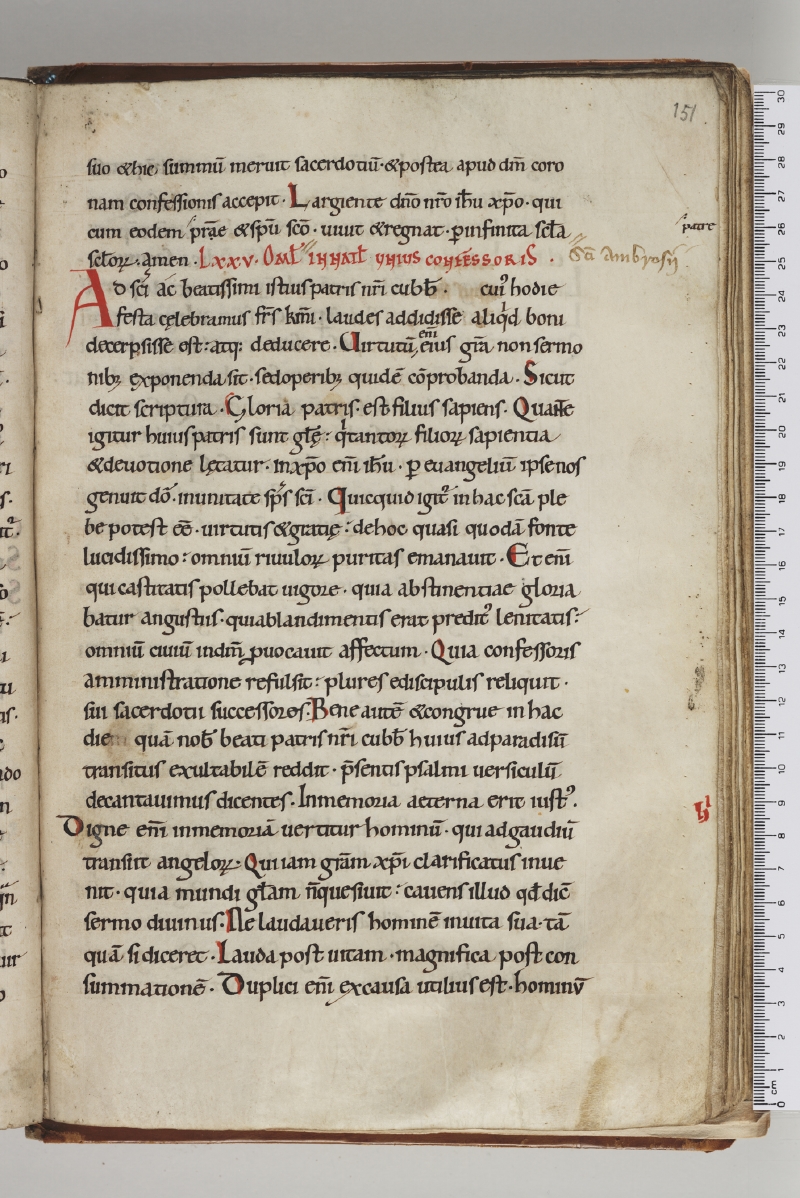 151
suo & hic, summū meruit sacerdotiū· & postea apud dm̄ coro
nam confessionis accepit· Largiente dn̄o nr̄o ih̄u xp̄o· qui
cum eodem pr̄ae & sp̄u sc̄o· uiuit & regnat· p infinita sc̄la
patre
sc̄lor̄ꝝ· amen· LXXV· OML̄ IN NAT̄L UNIUS CONFESSORIS·
Sc̄i Ambrosij
Ad sc̄i ac beatissimi istius patris nr̄i cubb̄· cuiꝰ hodie
festa celebramus fr̄s km̄i· laudes addidisse aliqd boni
decerpsisse est: atq; deducere· Uirtutū em̄ eius gr̄a non sermo
nib; exponenda sit· sed operib; quidē cōprobanda· Sicut
dicit scriptura· Gloria patris· est filius sapiens· Quantę
igitur huius patris sunt gl̄ę: q tantoꝝ filioꝝ sapientia
& deuotione lętatur· in xp̄o em̄ ih̄u· p euangeliū ipse nos
genuit dō· in unitate sp̄s sc̄i· Quicquid igit̄ in hac sc̄a ple
be potest ēē· uirtutis & gratię: de hoc quasi quodā fonte
lucidissimo: omniū riuuloꝝ puritas emanauit· Et em̄
qui castitatis pollebat uigore· quia abstinentiae gloria
batur angustiis· quia blandimentis erat preditꝰ lenitatis:
omniū ciuiū in dm̄ ꝓuocauit affectum· Quia confessoris
amministratione refulsit: plures e discipulis reliquit·
sui sacerdotii successores· Bene autē & congrue in hac
die quā nob̄ beati patris nr̄i cubb̄ huius ad paradisū
transitus exultabilē reddit· p̄sentis psalmi uersiculū
decantauimus dicentes· In memoria aeterna erit iustꝰ·
Digne em̄ in memoriā uertitur hominū· qui ad gaudiū
transiit angeloꝝ· Qui iam gr̄am xp̄i clarificatus inue
nit· quia mundi gl̄am n̄ quesiuit: cauens illud qd̄ dic̄
sermo diuinus· Ne laudaueris hominē in uita sua· tā
quā si diceret· Lauda post uitam· magnifica post con
summationē· Duplici em̄ ex causa utilius est· hominū